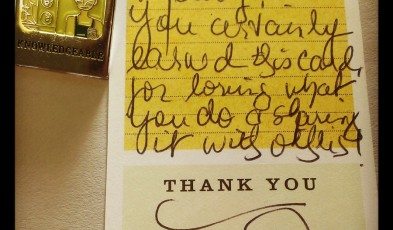 KNOWLEDGEABLE
you certainly
earned this card,
for loving what
you do & sharing
it with others!
THANK YOU